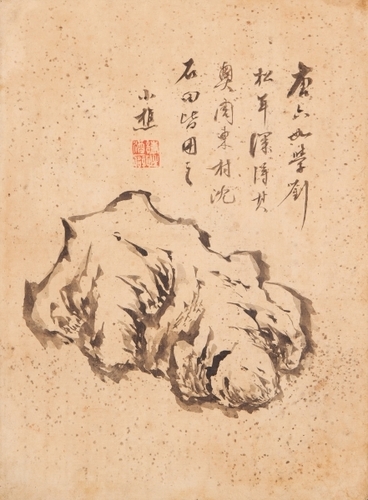 唐六如學劉
松年深得其
奧周東村沈
石田皆用之
小樵